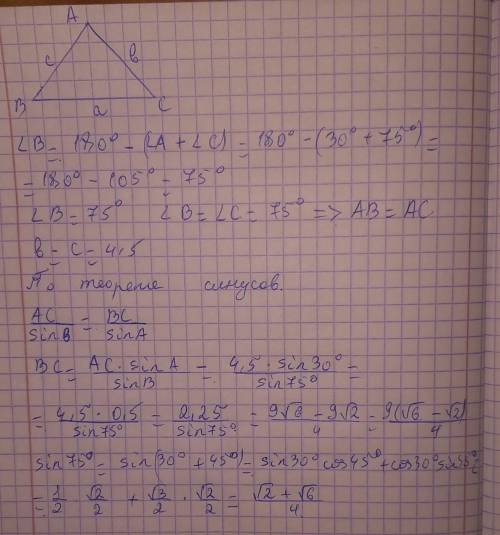 A
c в
B a C
∠B = 180° - (∠A + ∠C) = 180° - (30° + 75°) =
= 180° - 105° = 75°
∠B = 75° ∠B = ∠C = 75° => AB = AC
в = c = 4,5
По теореме синусов.
AC/sinB = BC/sinA
BC = AC · sinA/sinB = 4,5 · sin30°/sin75° =
= 4,5 · 0,5/sin75° = 2,25/sin75° = 9√6 - 9√2/4 = 9(√6 - √2)/4
sin75° = sin(30° + 45°) = sin30° cos45° + cos30° sin45° =
= 1/2 · √2/2 + √3/2 · √2/2 = √2 + √6/4